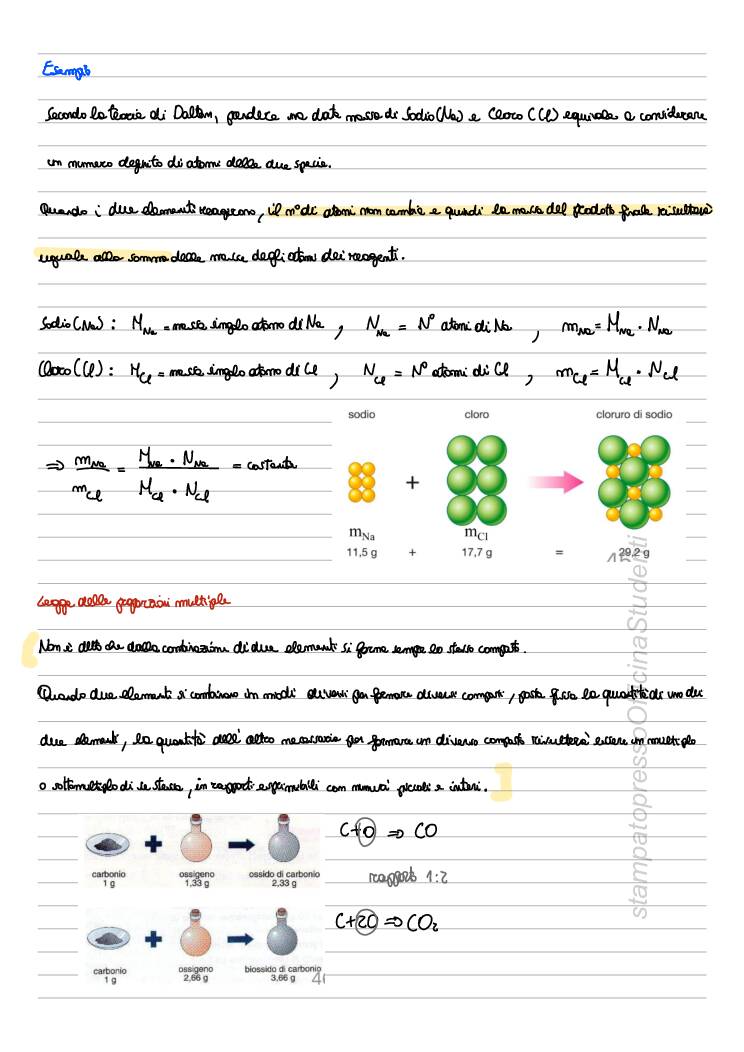 Esempio
Secondo la teoria di Dalton, prendere una data massa di Sodio (Na) e Cloro (Cl) equivale a considerare
un numero definito di atomi delle due specie.
Quando i due elementi reagiscono, il n° di atomi non cambia e quindi la massa del prodotto finale risulterà
uguale alla somma delle masse degli atomi dei reagenti.
Sodio (Na): M_Na = massa singolo atomo di Na , N_Na = N° atomi di Na , m_Na = M_Na · N_Na
Cloro (Cl): M_Cl = massa singolo atomo di Cl , N_Cl = N° atomi di Cl , m_Cl = M_Cl · N_Cl
sodio cloro cloruro di sodio
⇒ m_Na / m_Cl = M_Na · N_Na / M_Cl · N_Cl = costante
+
m_Na m_Cl
11,5 g + 17,7 g = 29,2 g
Legge delle proporzioni multiple
Non è detto che dalla combinazione di due elementi si forma sempre lo stesso composto.
Quando due elementi si combinano in modi diversi per formare diversi composti, posta fissa la quantità di uno dei
due elementi, la quantità dell'altro necessaria per formare un diverso composto risulterà essere un multiplo
o sottomultiplo di se stessa, in rapporti esprimibili con numeri piccoli e interi.
C+O ⇒ CO
carbonio ossigeno ossido di carbonio
1 g 1,33 g 2,33 g
rapporto 1:2
C+2O ⇒ CO₂
carbonio ossigeno biossido di carbonio
1 g 2,66 g 3,66 g
stampatopressoOfficinaStudenti